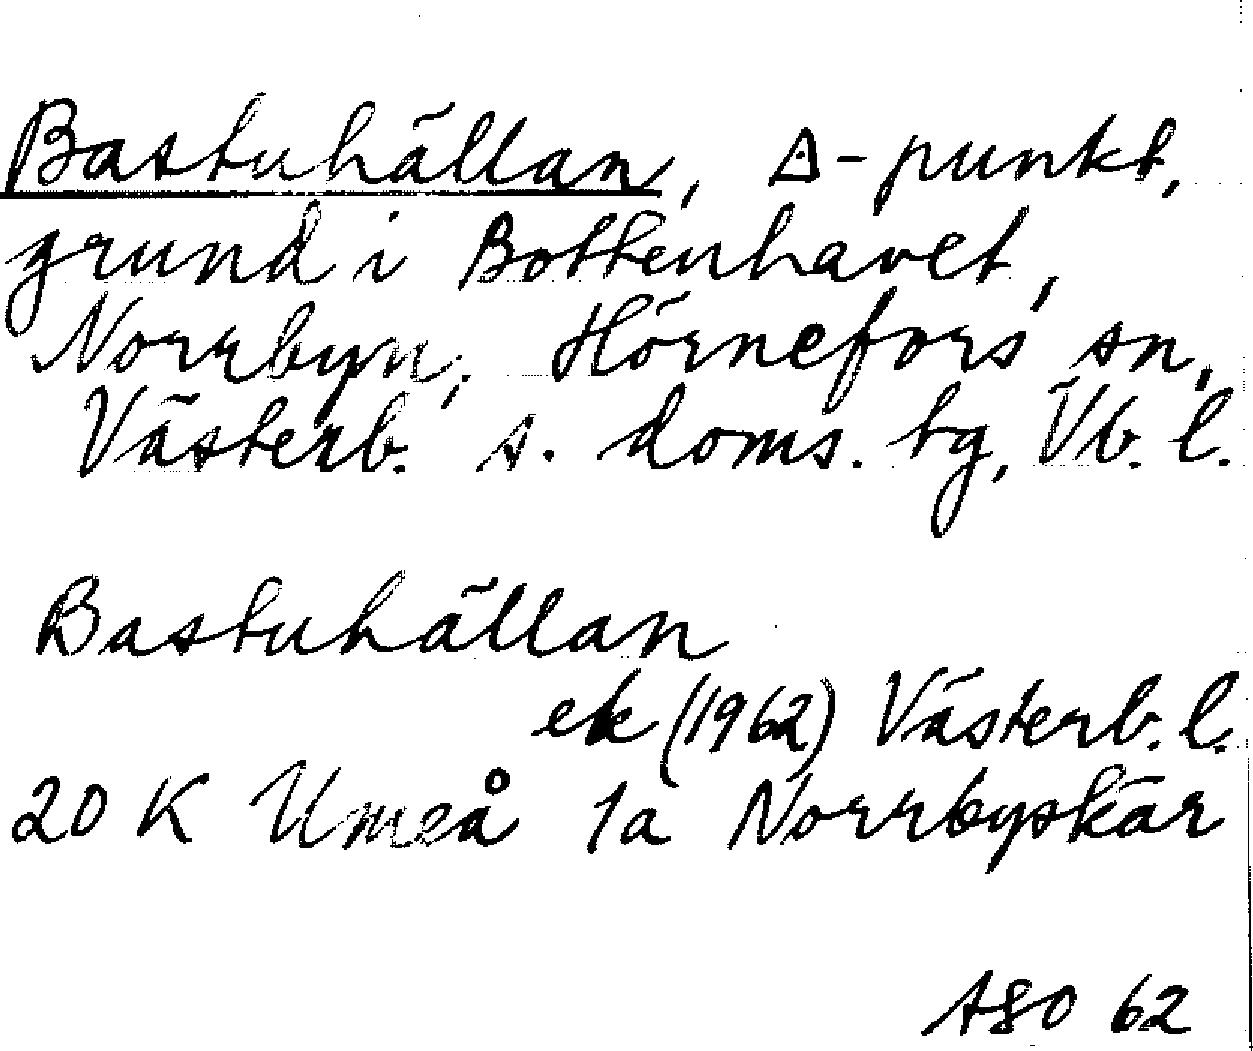 Bastuhällan, ◬-punkt,
grund i Bottenhavet,
Norrbyn, Hörnefors sn,
Västerb. s. doms. tg, Vb. l.
Bastuhällan
ek (1962) Västerb. l.
20 K Umeå 1a Norrbyskär
ASO 62